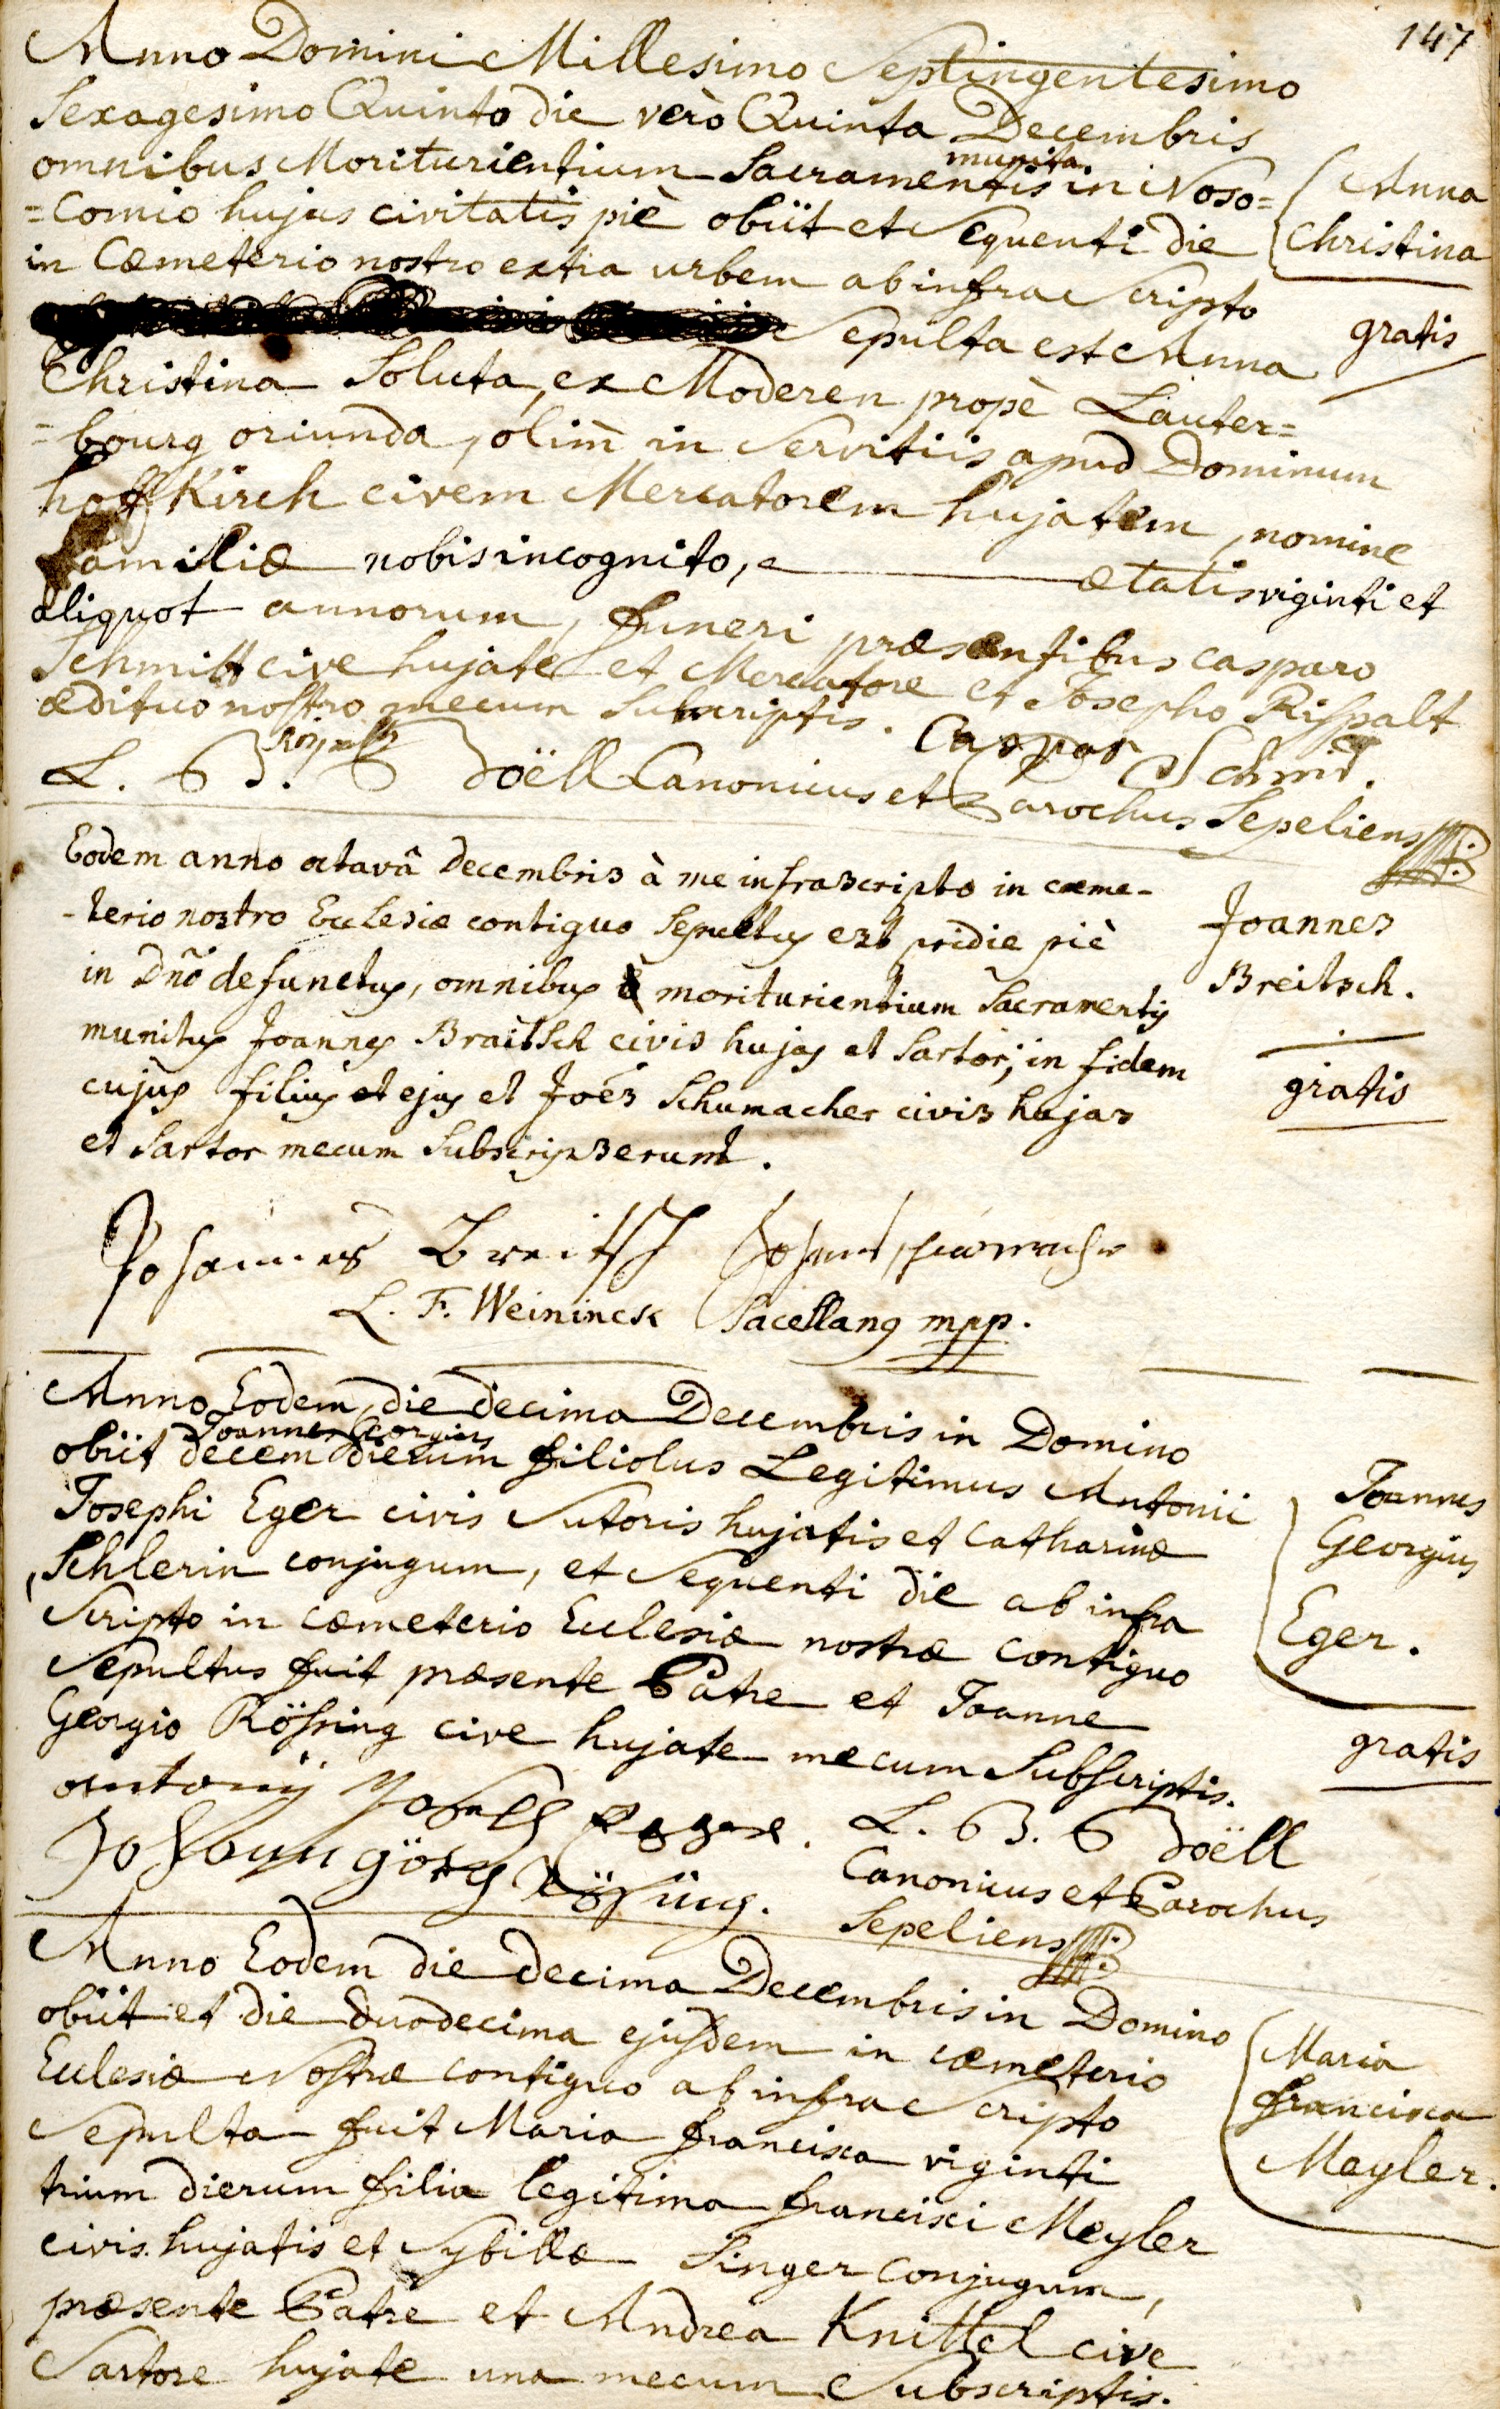 147
Anno Domini Millesimo Septingentesimo
Sexagesimo Quinto die verò Quinta Decembris
omnibus Moriturientium Sacramentis munita in Noso=
=comio hujus civitatis piè obiit et Sequenti die
in Cœmeterio nostro extra urbem ab infra Scripto
Sepulta est Anna
Christina Soluta, ex Moderen propè Lauter=
=bourg oriunda, olim in Servitiis apud Dominum
hoffKirch civem Mercatorem hujatem, nomine
familiæ nobis incognito, ætatis viginti et
aliquot annorum, funeri præsentibus casparo
Schmitt cive hujate et Mercatore et Josepho Rispalt
ædituo nostro mecum Subscriptis. Caspar Schmid.
Rispalt
L. B. G Doëll Canonicus et Parochus Sepeliens
Anna
Christina
gratis
Eodem anno octavâ Decembris à me infrascripto in cæme-
-terio nostro Ecclesiæ contiguo Sepultus est pridie piè
in Dño defunctus, omnibus moriturientium Sacramentis
munitus Joannes Braitsch civis hujas et Sartor; in fidem
cujus filius et ejus et Joës Schumacher civis hujas
et Sartor mecum Subscripserunt.
Joannes
Breitsch.
gratis
Johannes Breitsch Johann schumacher
L. F. Weininck Sacellan9 mpp.
Anno Eodem, die decima Decembris in Domino
obiit Joannes Georgius decem dierum filiolus Legitimus Antonii
Josephi Eger civis Sutoris hujatis et Catharinæ
Schlerin conjugum, et Sequenti die ab infra
Scripto in cœmeterio Ecclesiæ nostræ contiguo
Sepultus fuit præsente Patre et Joanne
Georgio Rößing cive hujate mecum Subscriptis.
Joannes
Georgius
Eger.
gratis
antonÿ Joseph Egger. L. B. G Doëll
Johann görg Rößing. Canonicus et Parochus
Sepeliens
Anno Eodem die decima Decembris in Domino
obiit et die duodecima ejusdem in cœmeterio
Ecclesiæ Nostræ contiguo ab infra Scripto
Sepulta fuit Maria francisca viginti
trium dierum filia legitima francisci Meyler
civis hujatis et Sybillæ Singer conjugum,
præsente Patre et Andrea Knittel cive
Sartore hujate una mecum Subscriptis.
Maria
francisca
Meyler.